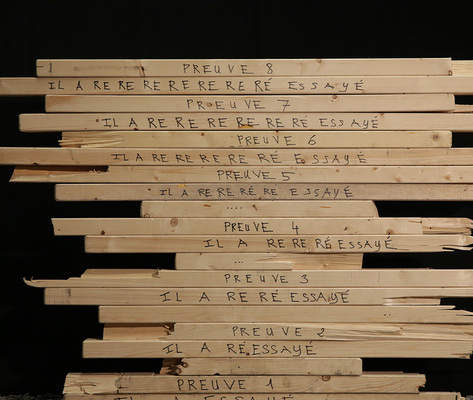 1 PREUVE 8
IL A RE RE RE RE RE RE RÉ ESSAYÉ
PREUVE 7
IL A RE RE RE RE RE RÉ ESSAYÉ
PREUVE 6
IL A RE RE RE RE RÉ ESSAYÉ
PREUVE 5
IL A RE RE RÉ RE ESSAYÉ
....
PREUVE 4
IL A RE RE RÉ ESSAYÉ
...
PREUVE 3
IL A RE RÉ ESSAYÉ
PREUVE 2
IL A RÉ ESSAYÉ
PREUVE 1
IL A ESSAYÉ